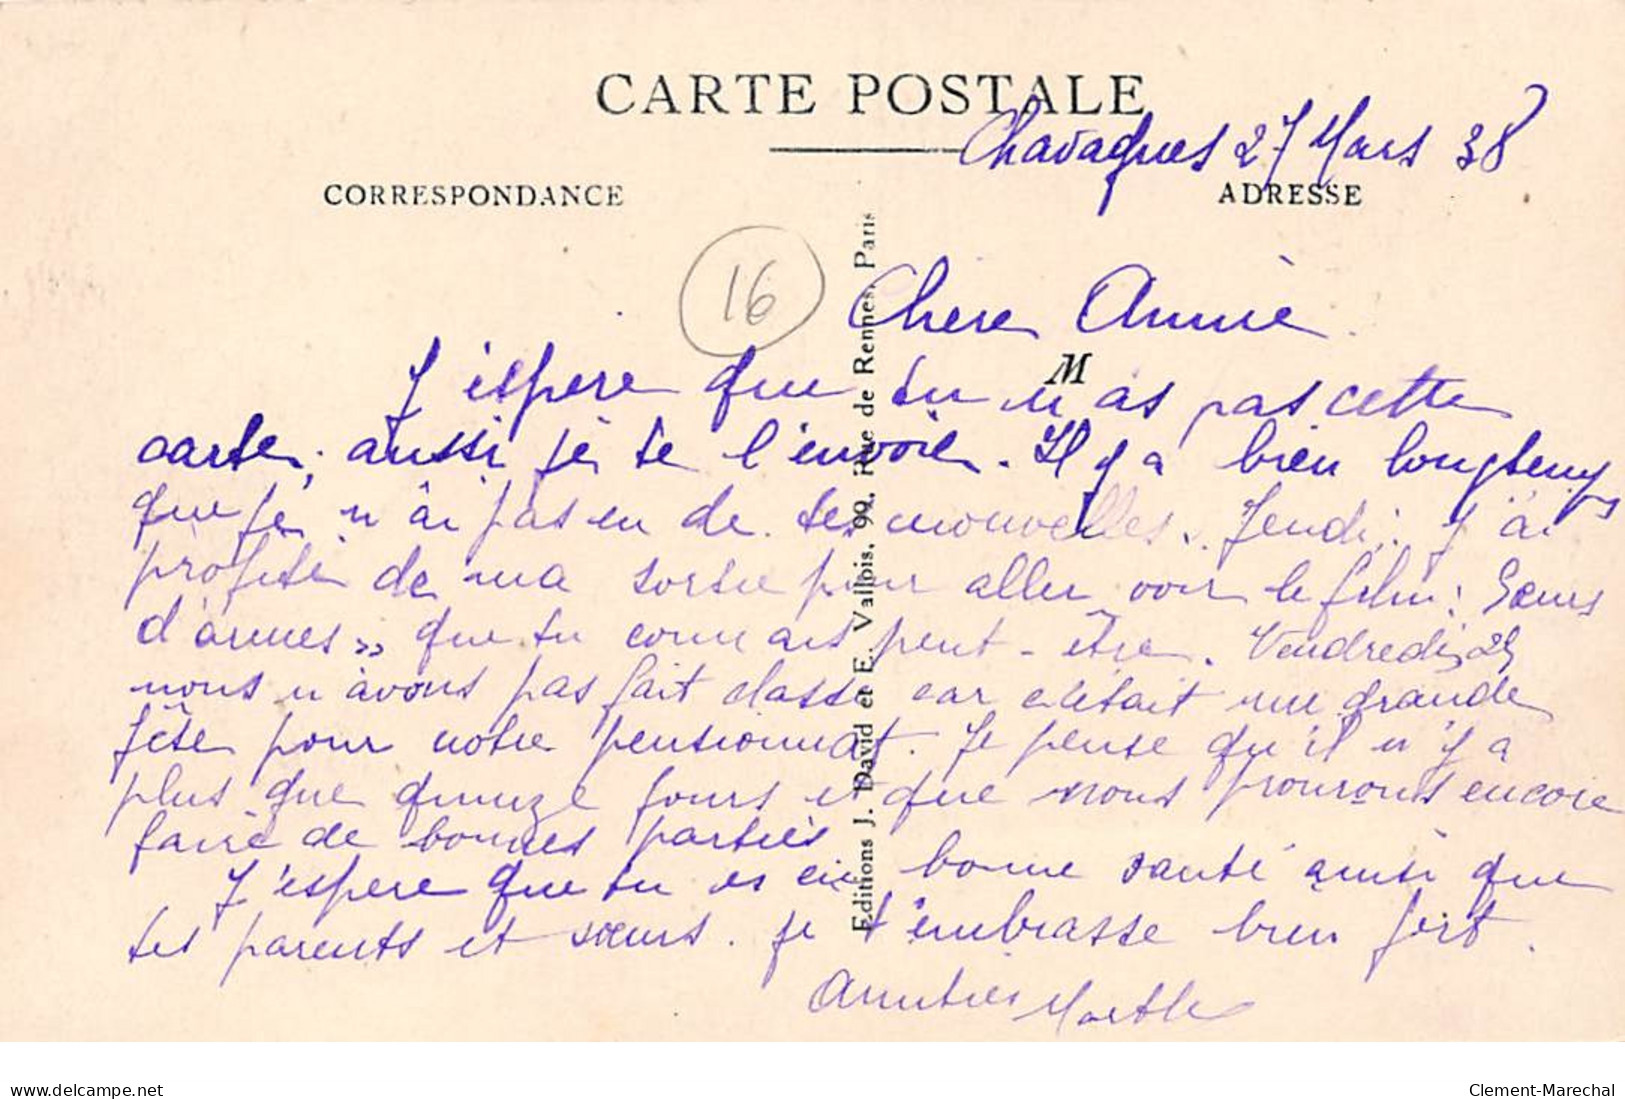 CARTE POSTALE
Chavagnes 27 Mars 38
CORRESPONDANCE
ADRESSE
16
Editions J. David et E. Vallois, 99, Rue de Rennes, Paris
M
Chère Annie
J'espère que tu n'as pas cette
carte, aussi je te l'envoie. Il y a bien longtemps
que je n'ai pas eu de tes nouvelles. Jeudi, j'ai
profité de ma sortie pour aller voir le film : Sœurs
d'armes » que tu connais peut-être. Vendredi 25
nous n'avons pas fait classe car c'était une grande
fête pour notre pensionnat. Je pense qu'il n'y a
plus que quinze jours et que nous pourrons encore
faire de bonnes parties
J'espère que tu es en bonne santé ainsi que
tes parents et sœurs. Je t'embrasse bien fort.
Amitiés Marthe
www.delcampe.net
Clement-Marechal